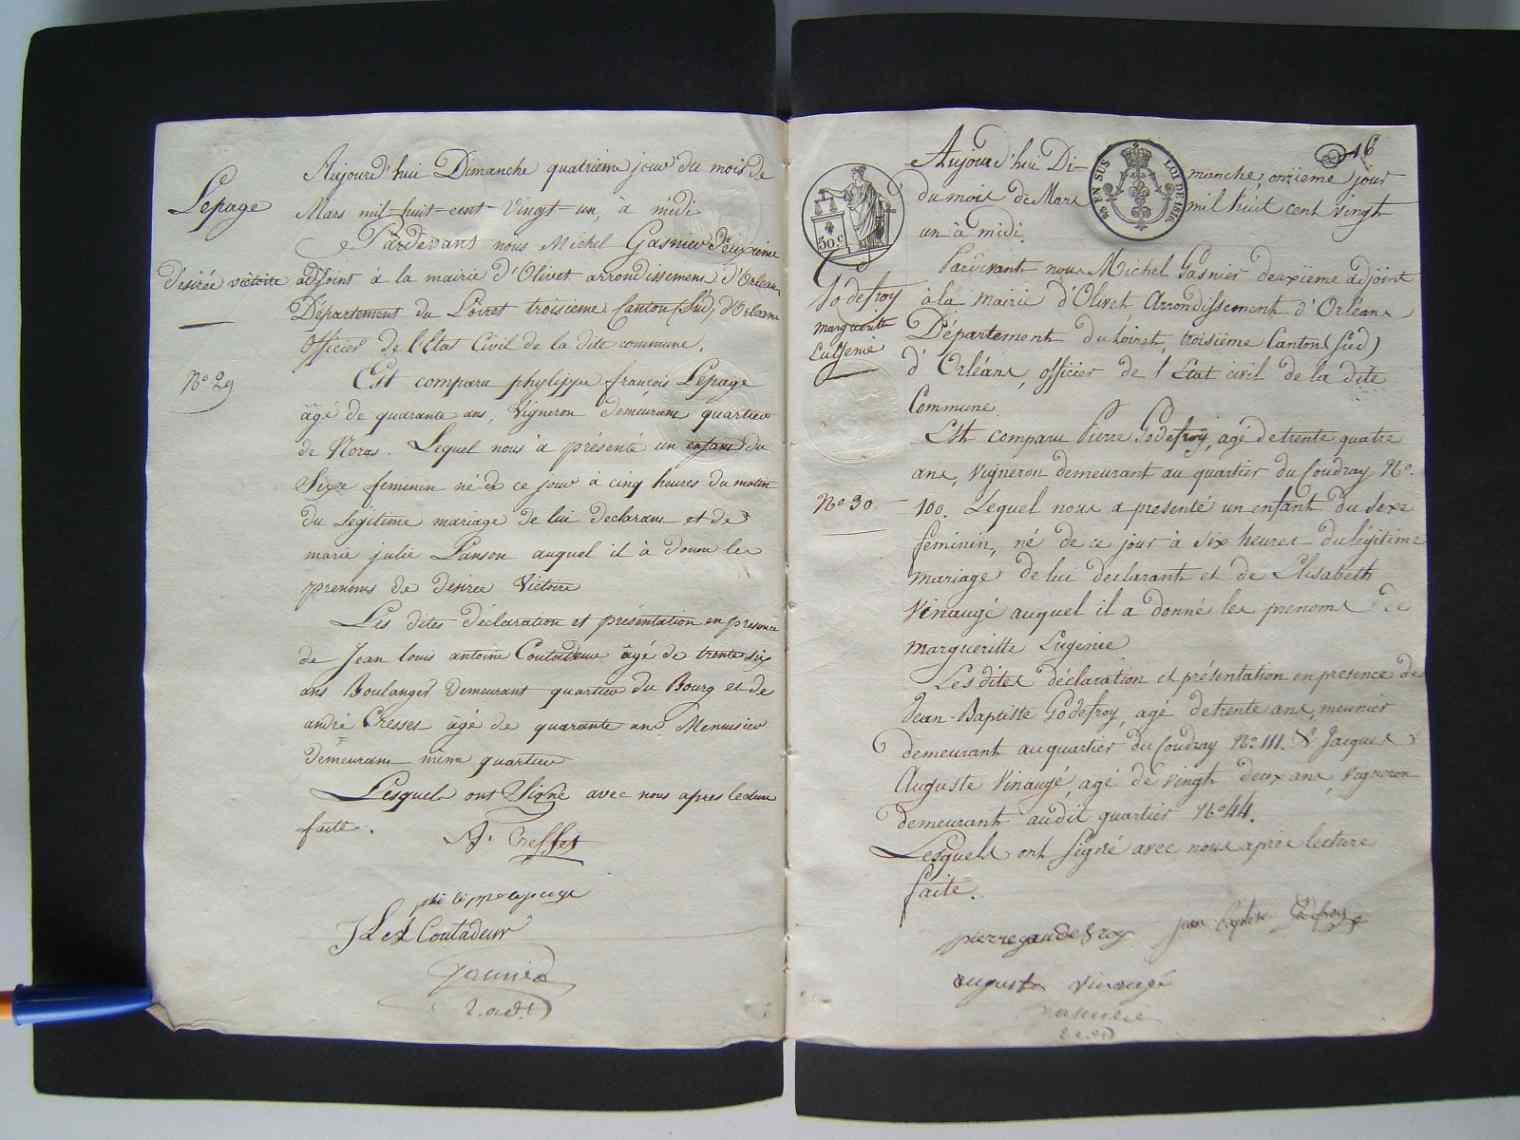 Lepage
desirée victoire
N.o 29
Aujourd'hui Dimanche quatrieme jour du mois de
Mars mil-huit-cent-vingt-un, à midi
Pardevant nous Michel Gasnier Deuxieme
adjoint à la mairie d'Olivet arrondissement d'Orléans
Département du Loiret troisieme Canton (Sud) d'Orléans
officier de l'Etat Civil de la dite commune.
Est comparu phylippe françois Lepage
âgé de quarante ans, Vigneron demeurant quartier
de Noras. Lequel nous à présenté un enfant du
Sexe femenin né de ce jour à cinq heures du matin
du Légitime mariage de lui declarant et de
marie julie Panson auquel il à donné les
prenoms de desirée Victoire
Les dites déclaration et présentation en presence
de Jean louis antoine Coutadeur âgé de trente six
ans Boulanger demeurant quartier du Bourg et de
andré Cresses âgé de quarante ans Menuisier
demeurant même quartier
Lesquels ont Signé avec nous apres lecture
faite.
A. Cresses
philippe lepage
J L A Coutadeur
Gasnier
2. adt
16
30.c
EN SUS
LOI DE 1816
Godefroy
margueritte
Eugenie
N.o 30
Aujourd'hui Di-
manche, onzieme jour
du mois de Mars
mil huit cent vingt
un à midi.
Pardevant nous Michel Gasnier deuxieme adjoint
à la mairie d'Olivet, Arrondissement d'Orléans
Département du Loiret, troisième Canton (Sud)
d'Orléans, officier de l'Etat civil de la dite
Commune
Est comparu Pierre Godefroy, agé de trente quatre
ans, Vigneron demeurant au quartier du Coudray N.o
100. Lequel nous a presenté un enfant du Sexe
feminin, né de ce jour à six heures du légitime
mariage de lui declarant et de Elisabeth
Vinaugé auquel il a donné les prenoms de
margueritte Eugenie
Les dites déclaration et présentation en presence de
Jean-Baptiste Godefroy, agé de trente ans, meunier
demeurant au quartier du Coudray N.o 111. & Jacques
Auguste Vinaugé, agé de vingt deux ans, Vigneron
demeurant audit quartier N.o 44.
Lesquels ont signé avec nous après lecture
faite.
pierre gaudefroy
jean baptiste Godefroy
auguste vinaugé
Gasnier
2. adt